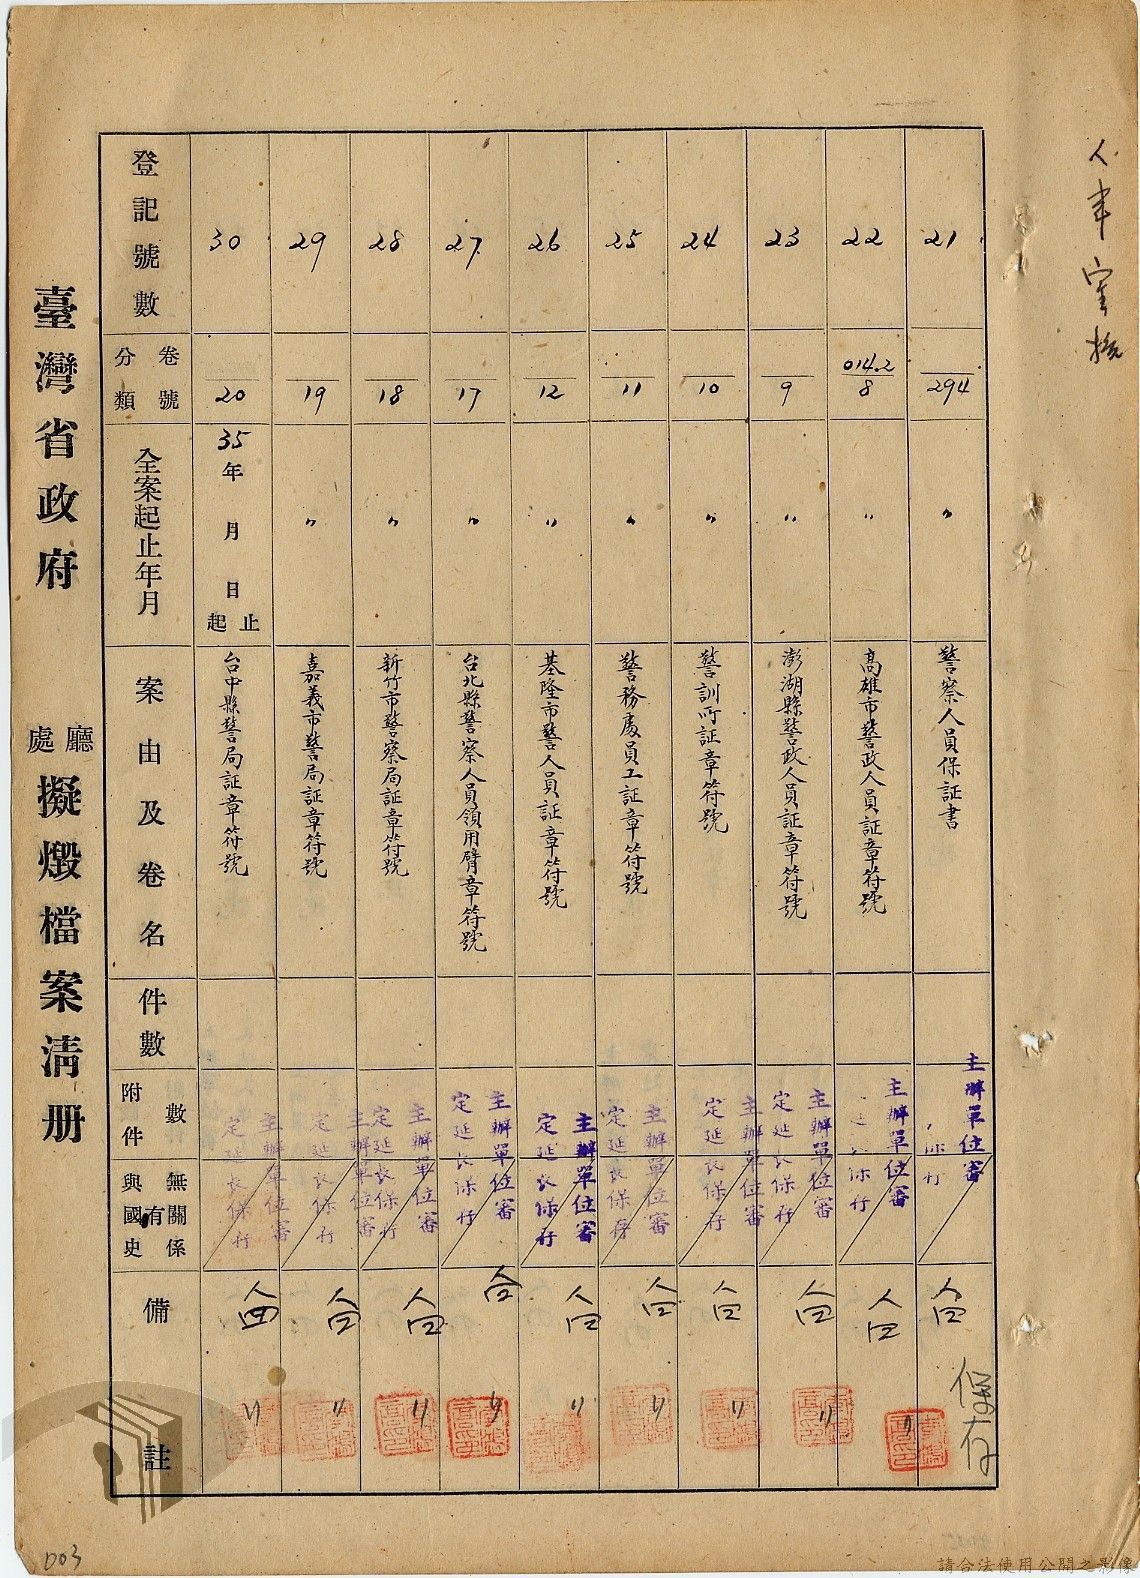 人事室
臺灣省政府
廳處
擬燬檔案清册
登記號數
21
22
23
24
25
26
27
28
29
30
卷號
分類
294
014.2
8
9
10
11
12
17
18
19
20
全案起止年月
〃
〃
〃
〃
〃
〃
〃
〃
〃
35年 月 日
起止
案由及卷名
警察人員保証書
高雄市警政人員証章符號
澎湖縣警政人員証章符號
警訓所証章符號
警務處員工証章符號
基隆市警人員証章符號
台北縣警察人員領用臂章符號
新竹市警察局証章符號
嘉義市警局証章符號
台中縣警局証章符號
件數
附件數
與國史有無關係
主辦單位審
保存
主辦單位審
保存
主辦單位審
定延長保存
主辦單位審
定延長保存
主辦單位審
定延長保存
主辦單位審
定延長保存
主辦單位審
定延長保存
主辦單位審
定延長保存
主辦單位審
定延長保存
主辦單位審
定延長保存
備註
保存
〃
〃
〃
〃
〃
〃
〃
〃
〃
003
請合法使用公開之影像